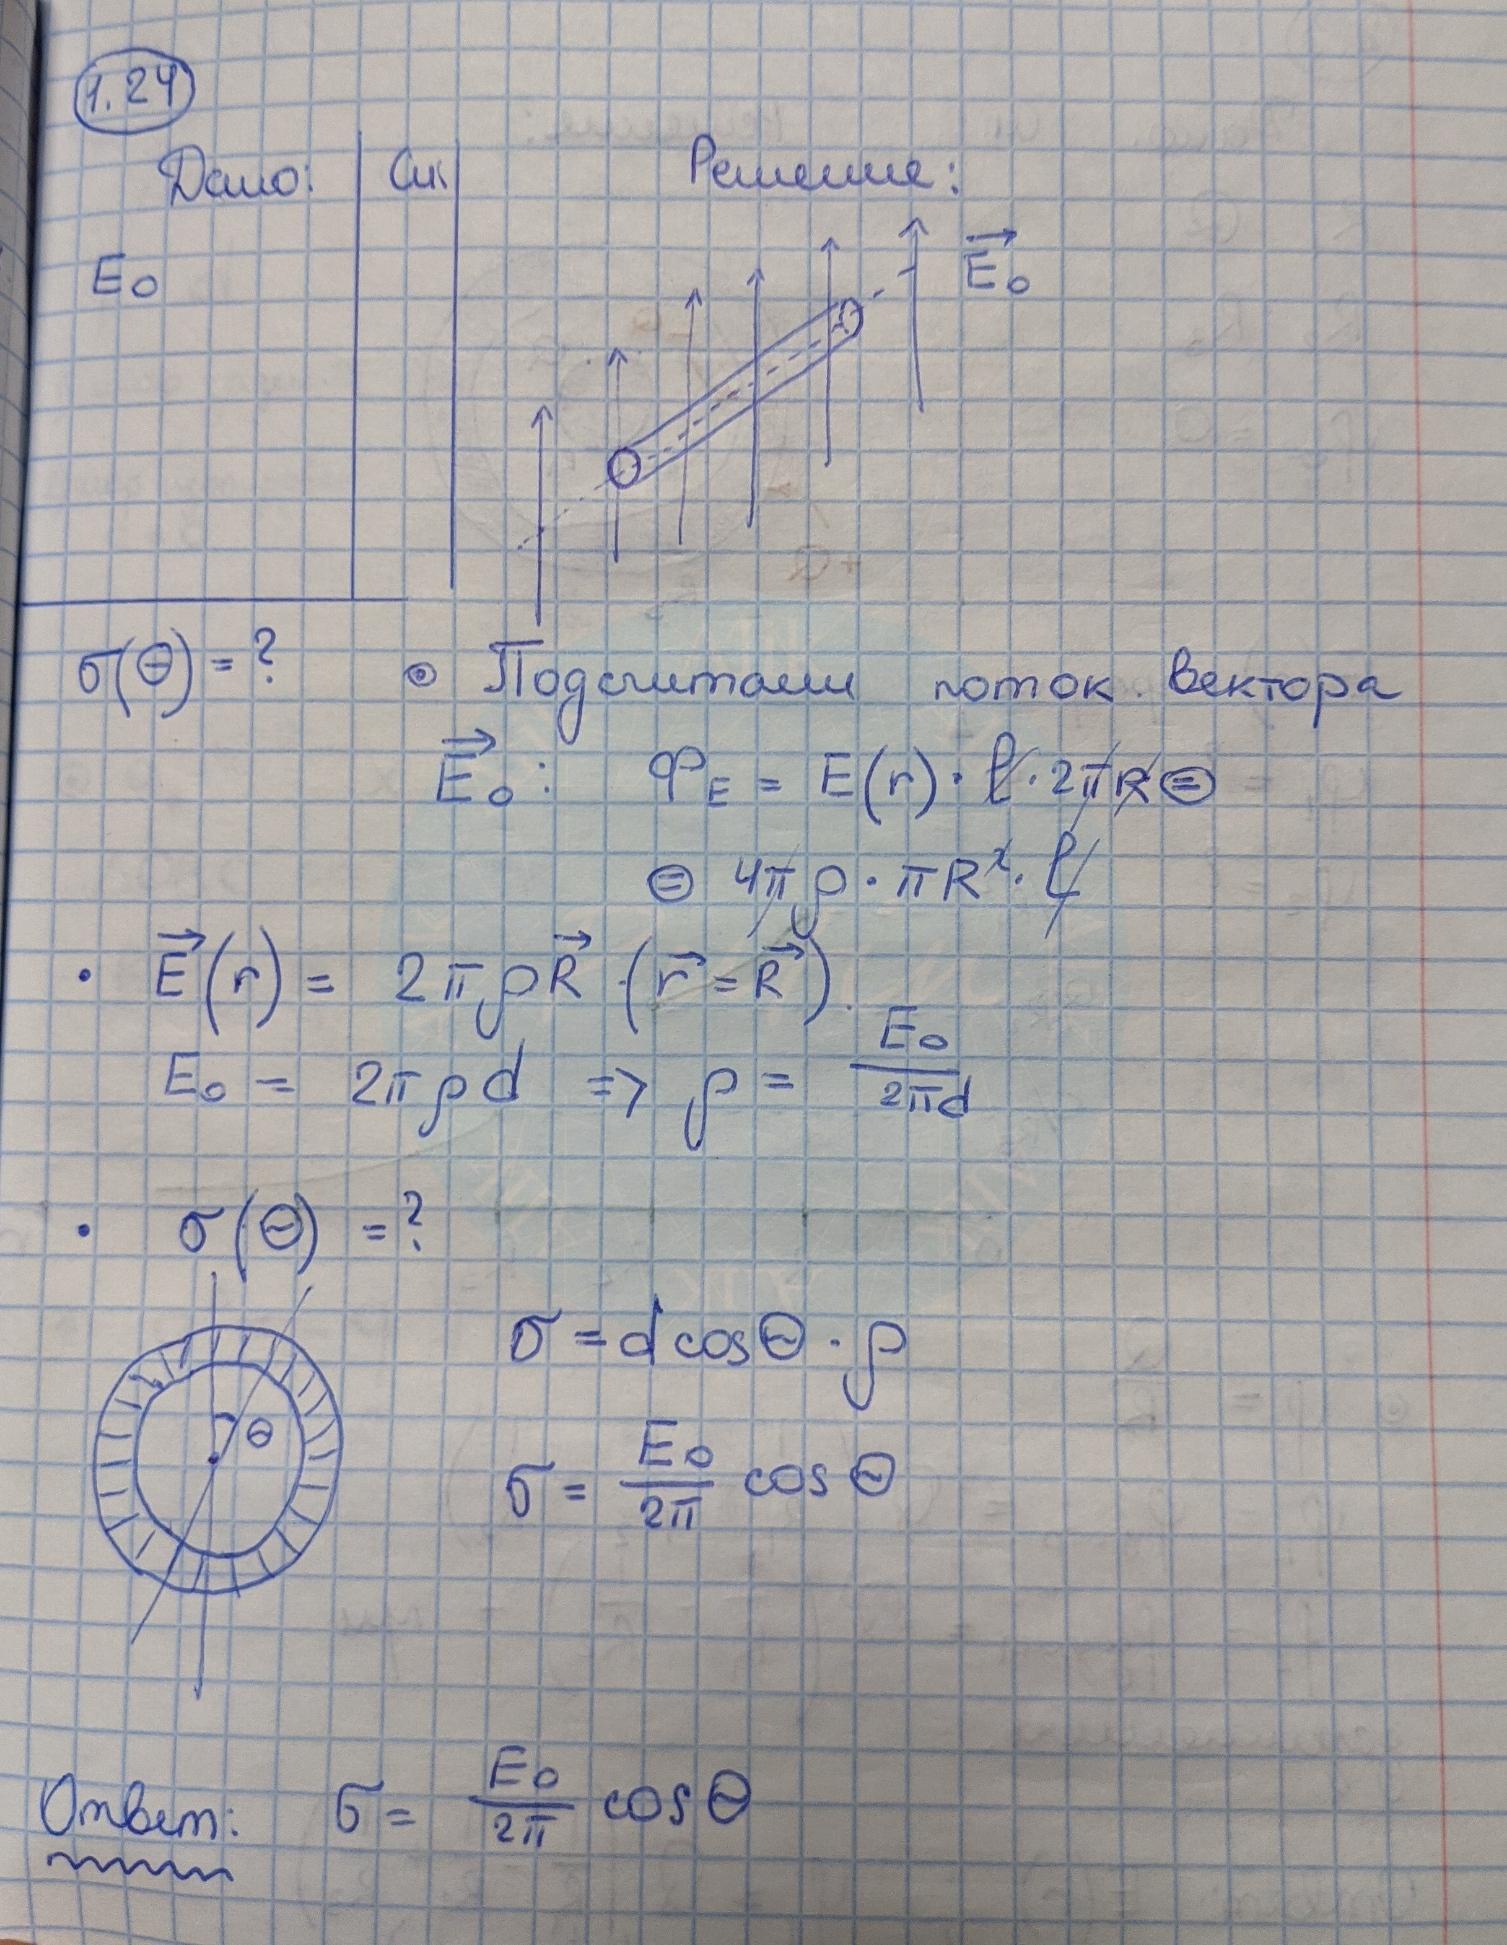 1.24
Дано: Си Решение:
E₀
E⃗₀
σ(Θ) = ?
⊙ Подсчитаем поток вектора
E⃗₀: Φ_E = E(r) · l · 2πR ⊜
⊜ 4πρ · πR² · l
• E⃗(r) = 2πρR⃗ (r⃗ = R⃗).
E₀ = 2πρd => ρ = E₀/2πd
• σ(Θ) = ?
Θ
σ = d cosΘ · ρ
σ = E₀/2π cosΘ
Ответ: σ = E₀/2π cosΘ